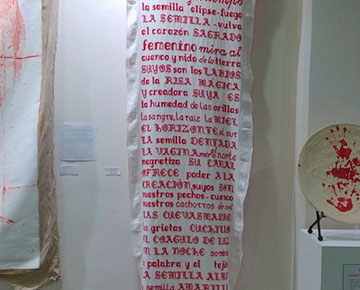 la semilla elipse-fuego
LA SEMILLA-vulva
el corazón SAGRADO
femenino mira al
cuenco y nido de la tierra
SUYOS son los LABIOS
de la RISA MAGICA
y creadora SUYA ES
la humedad de las orillas
la sangre, la raiz la MIEL
EL HORIZONTE, el sur
LA semilla DENTADA
LA VAGINA norte
magnetiza SU CANAL
OFRECE poder A LA
CREACION, suyos SON
nuestros pechos-cuenco
nuestros cachorros de
LAS CUEVAS MADRE
la grietas CUCHILLO
UN COAGULO DE LUZ
EN LA NOCHE
palabra y el
LA SEMILLA
semilla